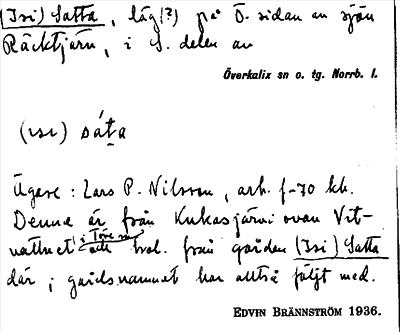 (Isi) Satta, läg(?) på Ö. sidan av sjön
Räcktjärn, i S. delen av
Överkalix sn o. tg. Norrb. l.
(ısı) sáta
Ägare: Lars P. Nilsson, arb. f-70 kk.
Denne är från Kukasjärvi ovan Vit-
vattnet i Töre sn
och trol. från gården (Isi) Satta
där i gårdsnamnet har alltså följt med.
EDVIN BRÄNNSTRÖM 1936.